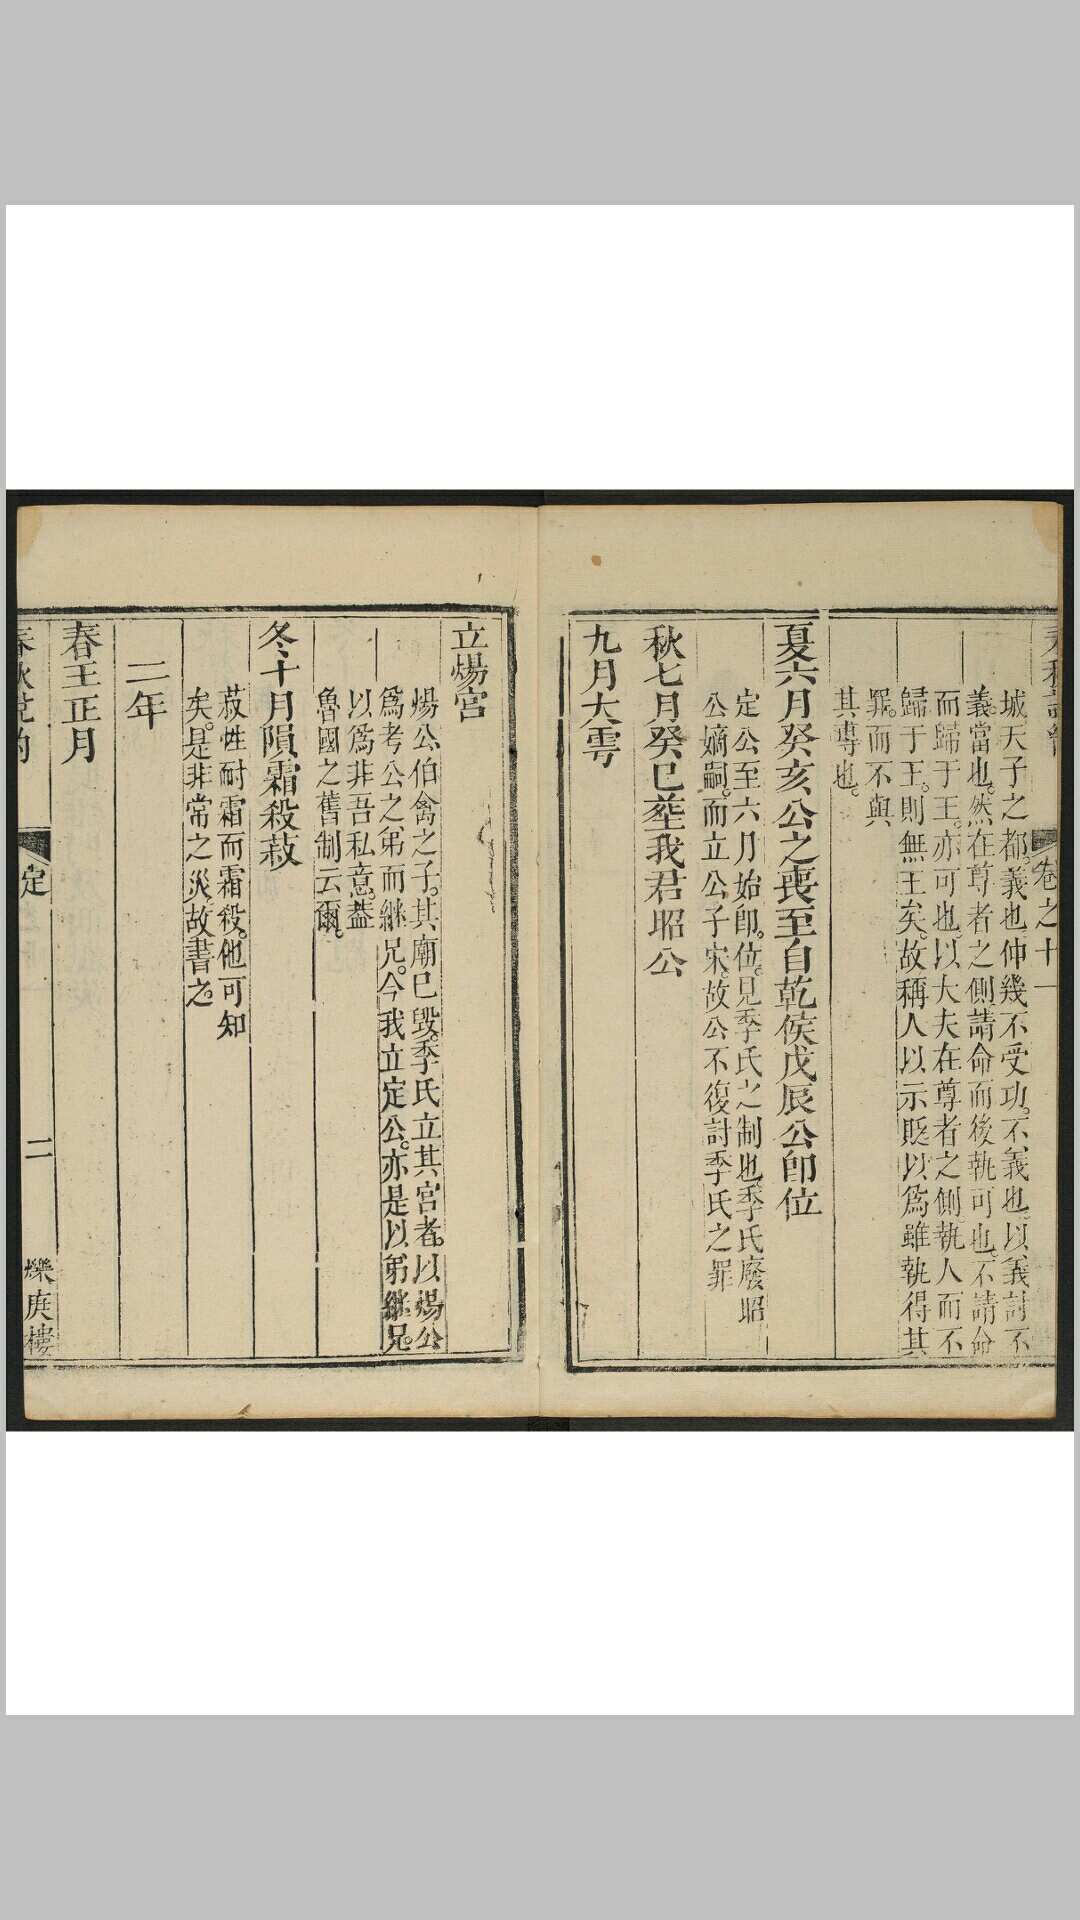 卷之十一
城天子之都義也仲幾不受功不義也以義討不
義當也然在尊者之側請命而後執可也不請命
而歸于王亦可也以大夫在尊者之側執人而不
歸于王則無王矣故稱人以示貶以爲雖執得其
罪而不與
其專也
夏六月癸亥公之喪至自乾侯戊辰公卽位
定公至六月始卽位見季氏之制也季氏廢昭
公嫡嗣而立公子宋故公不復討季氏之罪
秋七月癸巳葬我君昭公
九月大雩
立煬宮
煬公伯禽之子其廟已毀季氏立其宮者以煬公
爲考公之弟而繼兄今我立定公亦是以弟繼兄
以爲非吾私意葢
魯國之舊制云爾
冬十月隕霜殺菽
菽性耐霜而霜殺他可知
矣是非常之災故書之
二年
春王正月
定 二